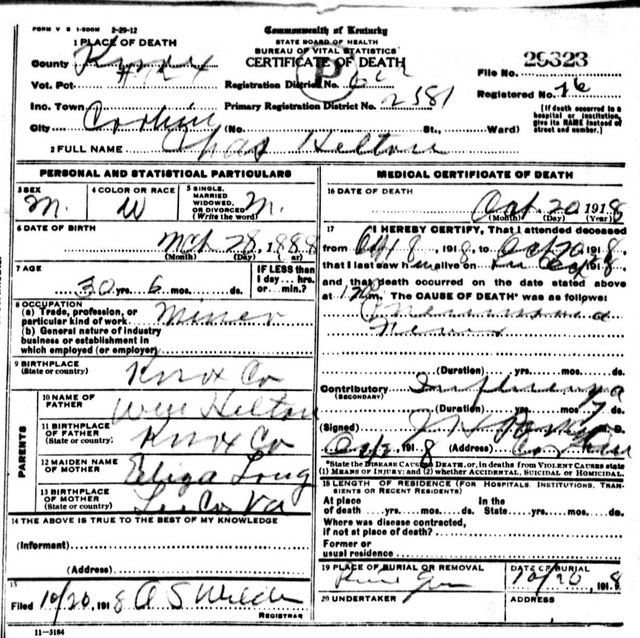 FORM V S 1-500M 2-29-12
Commonwealth of Kentucky
STATE BOARD OF HEALTH
BUREAU OF VITAL STATISTICS
CERTIFICATE OF DEATH
1 PLACE OF DEATH
County Knox
Vot. Pct.
Inc. Town Corbin
City
Registration District No.
Primary Registration District No. 2381
(No. St., Ward)
File No. 29323
Registered No. 76
[If death occurred in a hospital or institution, give its NAME instead of street and number.]
2 FULL NAME Chas Helton
PERSONAL AND STATISTICAL PARTICULARS
3 SEX
M.
4 COLOR OR RACE
W
5 SINGLE, MARRIED WIDOWED, OR DIVORCED (Write the word)
M.
6 DATE OF BIRTH
Mch 28, 1888
(Month) (Day)
7 AGE
30 yrs. 6 mos. ds.
IF LESS than 1 day... hrs. or... min.?
8 OCCUPATION
(a) Trade, profession, or particular kind of work Miner
(b) General nature of industry business or establishment in which employed (or employer)
9 BIRTHPLACE
(State or country)
Knox Co
PARENTS
10 NAME OF FATHER
Will Helton
11 BIRTHPLACE OF FATHER
(State or country)
Knox Co
12 MAIDEN NAME OF MOTHER
Eliza Long
13 BIRTHPLACE OF MOTHER
(State or country)
Lee Co Va
14 THE ABOVE IS TRUE TO THE BEST OF MY KNOWLEDGE
(Informant)
(Address)
15
Filed 10/20, 1918 A S
REGISTRAR
11-3184
MEDICAL CERTIFICATE OF DEATH
16 DATE OF DEATH
Oct 20 1918
(Month) (Day) (Year)
17 I HEREBY CERTIFY, That I attended deceased
from 1918 to Oct 20 1918.
that I last saw h alive on 1918.
and that death occurred on the date stated above
at m. The CAUSE OF DEATH* was as follows:
(Duration) yrs. mos. ds.
Contributory Influenza
(SECONDARY)
(Duration) yrs. mos 7 ds.
(Signed) D.
1918 (Address) Corbin
*State the DISEASE CAUSING DEATH, or, in deaths from VIOLENT CAUSES state
(1) MEANS OF INJURY; and (2) whether ACCIDENTAL, SUICIDAL or HOMICIDAL.
18 LENGTH OF RESIDENCE (FOR HOSPITALS, INSTITUTIONS, TRANSIENTS OR RECENT RESIDENTS)
At place of death yrs. mos. ds. In the State yrs. mos. ds.
Where was disease contracted, if not at place of death?
Former or usual residence
19 PLACE OF BURIAL OR REMOVAL
DATE OF BURIAL
10/20 1918
20 UNDERTAKER
ADDRESS